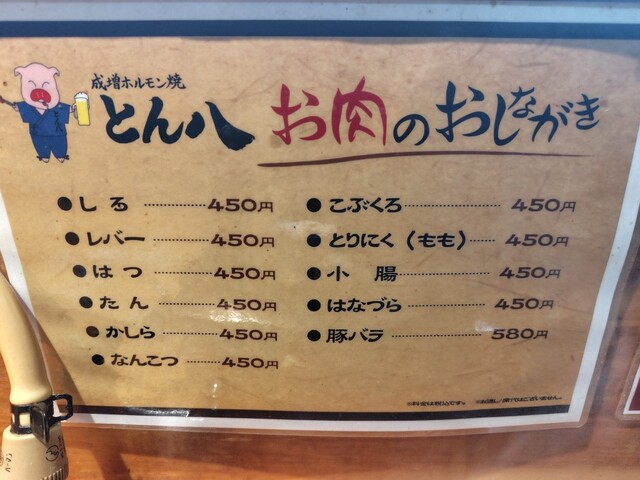 成増ホルモン焼
とん八
お肉のおしながき
●しろ………450円
●レバー………450円
●はつ………450円
●たん………450円
●かしら………450円
●なんこつ………450円
●こぶくろ………450円
●とりにく(もも)……450円
●小腸………450円
●はなづら………450円
●豚バラ………580円
※料金は税込です。 ※お通し/席代はございません。